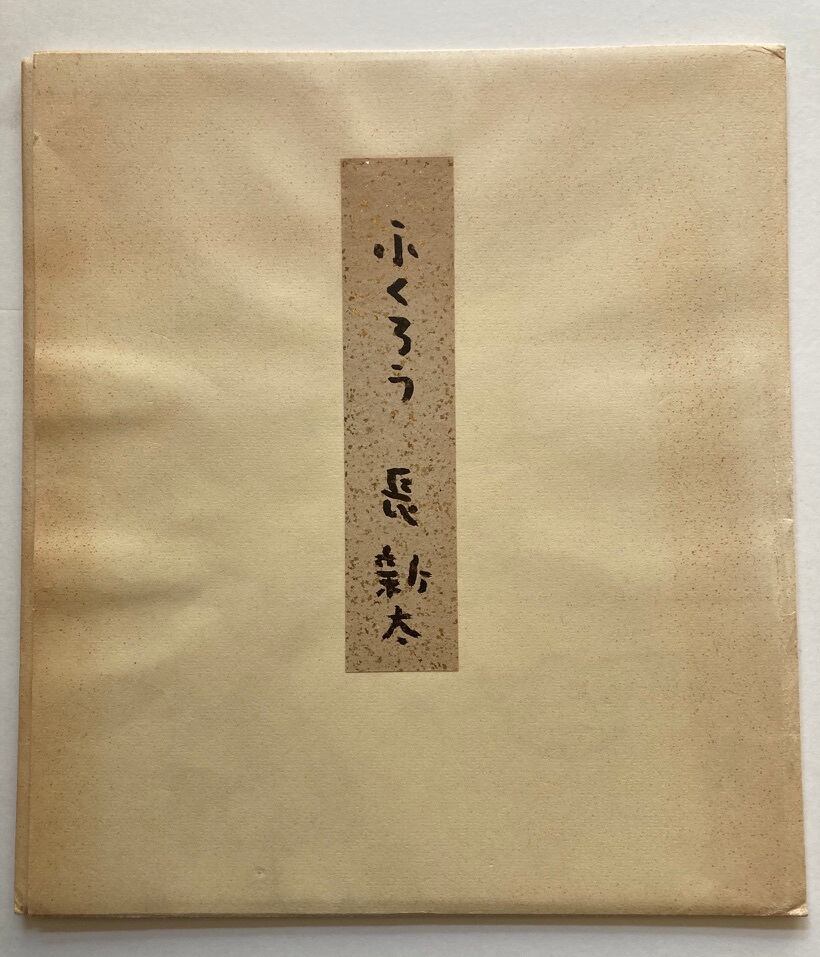 ふくろう 長新太